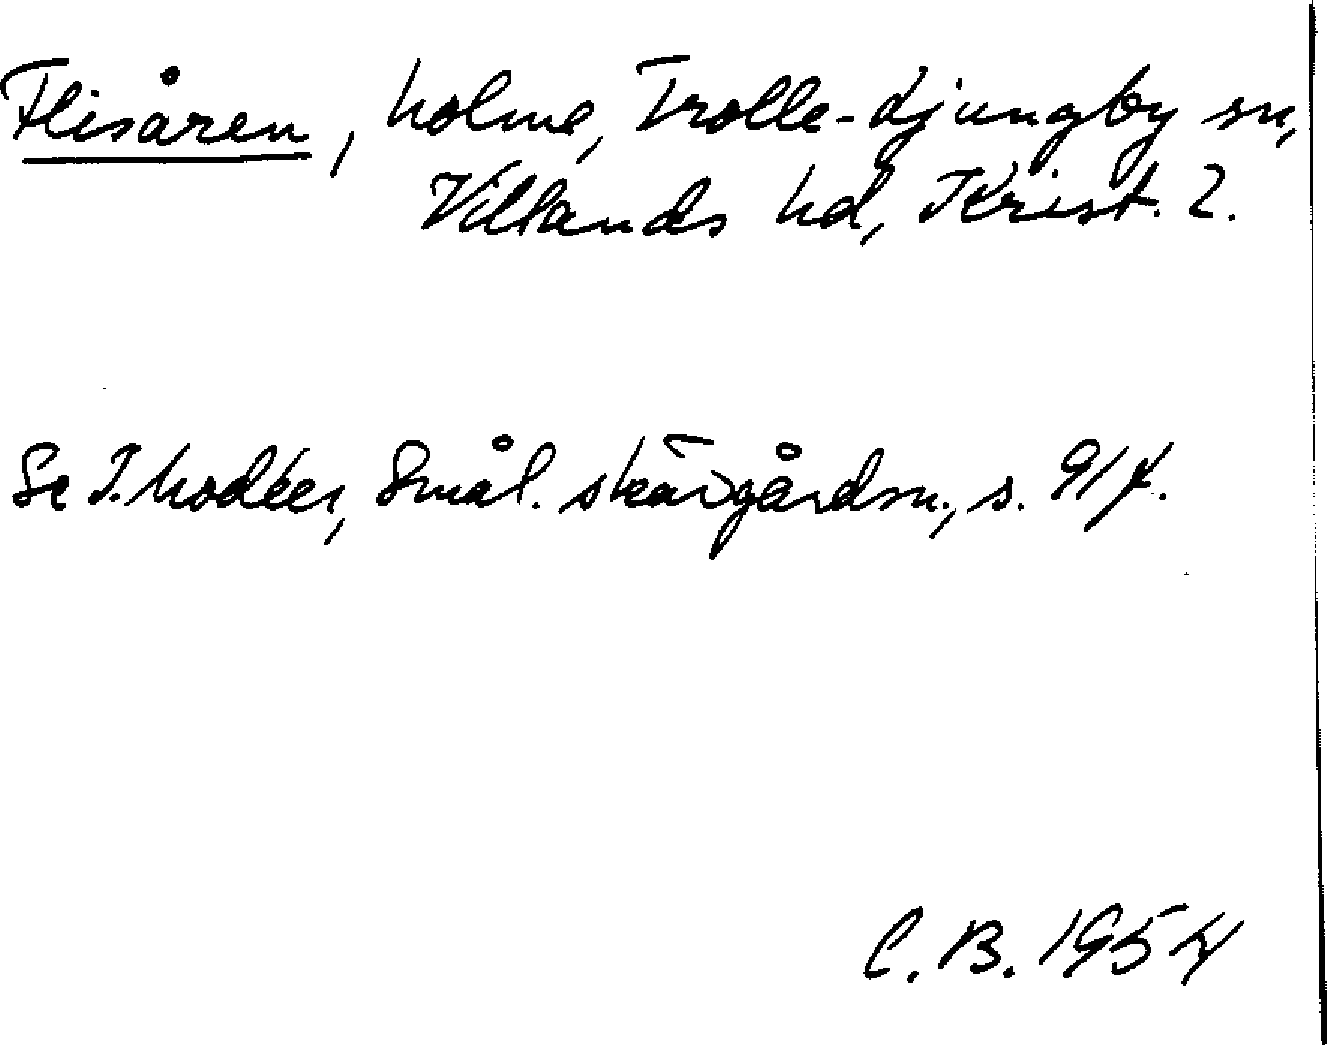 Flisåren, holme, Trolle-Ljungby sn,
Villands hd, Krist. l.
Se I. Modéer, Smål. skärgårdsn., s. 91 f.
C. B. 1954